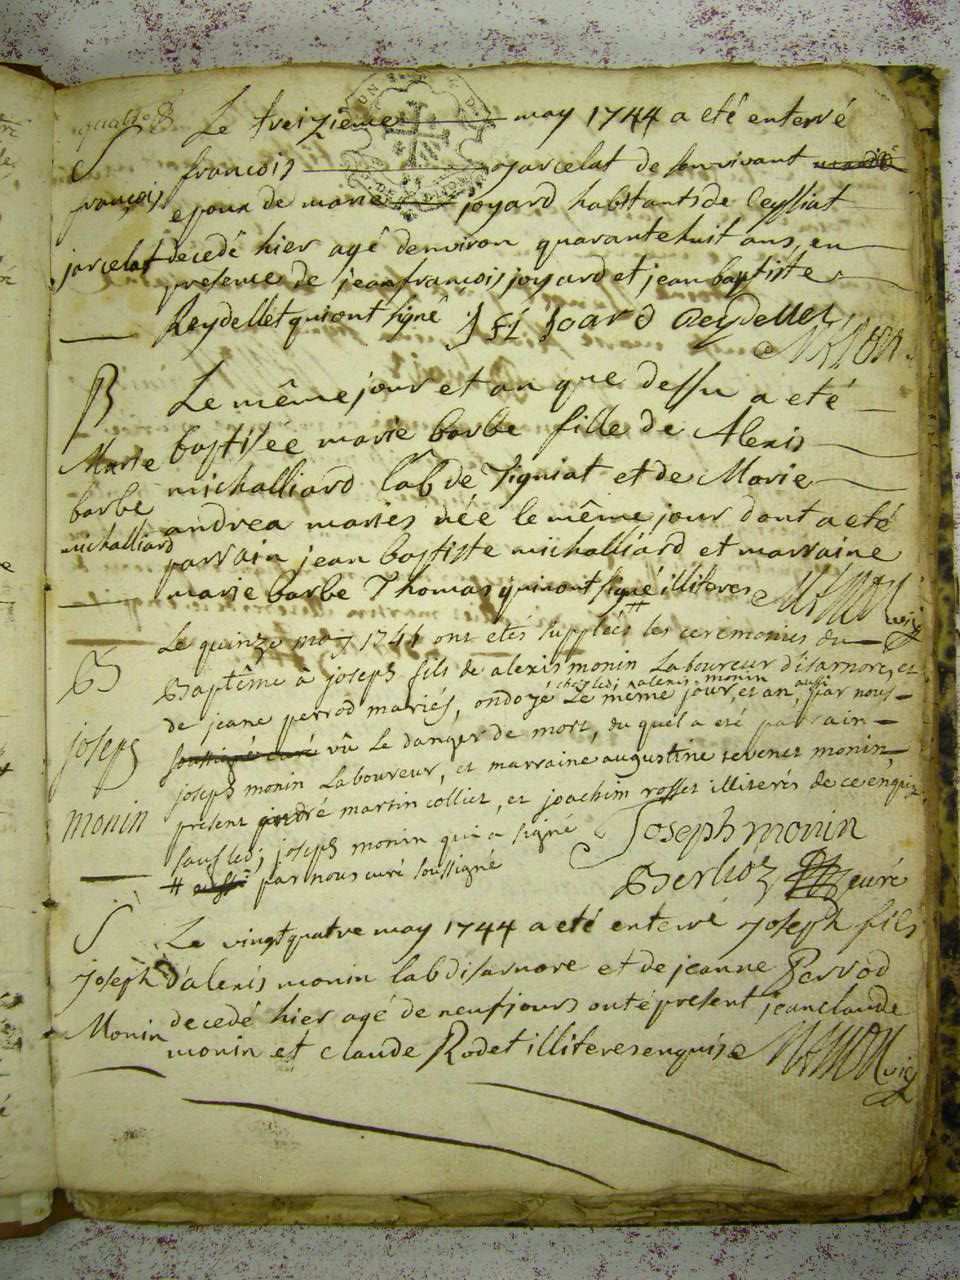 quatre 8
Le treizième may 1744 a eté enterré
S
françois jarcelat de sonvivant
françois
epoux de marie joyard habitants de Ceyssiat
jarcelat
decedé hier agé denviron quarantehuit ans, en
presence de jeanfrancois joyard et jean baptiste
Reydellet qui ont signé J f Joard Reydellet
B
Le même jour et an que dessu a eté
Marie
baptisée marie barbe fille de Alexis
barbe
michalliard lab de Tigniat et de Marie
michalliard
andrea maries née le même jour dont a eté
parrain jean baptiste michalliard et marraine
marie barbe Thomas qui n'ont signé illiteres
Le quinze may 1744 ont etés supplées les ceremonies du
B
Baptême à joseph fils de alexis monin Laboureur d'isarnore, et
chez ledj alexis monin aussi
de jeane perrod mariés, ondozé Le même jour, et an, par nous
joseph
soussigné curé vû Le danger de mort, du quel a eté parrain
monin
joseph monin Laboureur, et marraine augustine tevenet monin,
present andré martin collier, et joachim rosset illiterés de ce enquis
sauf ledj joseph monin qui a signé Joseph monin
# aussi par nous curé soussigné Berlioz curé
S
Le vingtquatre may 1744 a eté enterré Joseph fils
Joseph
d'alexis monin lab disarnore et de jeanne Perrod
Monin
decedé hier agé de neuf jours onté present jean claude
monin et claude Rodet illiteres enquis